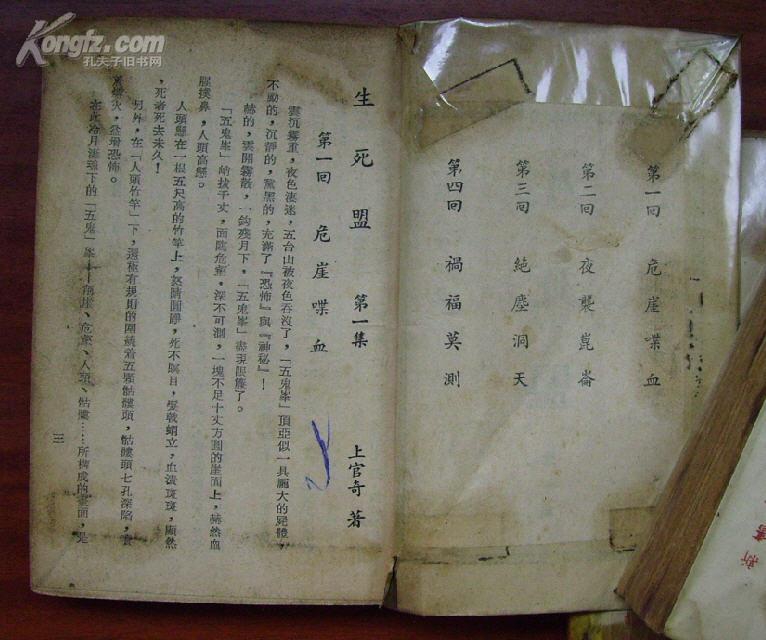 Kongfz.com
孔夫子旧书网
第一回 危崖喋血
第二回 夜襲崑崙
第三回 絶塵洞天
第四回 禍福莫測
生死盟 第一集 上官奇著
第一回 危崖喋血
雲沉霧重，夜色淒迷，五台山被夜色吞沒了，「五鬼峯」頂亞似一具龐大的屍體，
不動的，沉靜的，黧黑的，充滿了『恐怖』與『神秘』！
的，雲開霧散，一鈎殘月下，「五鬼峯」盡現眼簾了。
「五鬼峯」峭拔千丈，面臨危崖，深不可測，一塊不足十丈方圓的崖面上，赫然血
腥撲鼻，人頭高懸。
人頭懸在一根五尺高的竹竿上，怒睛圓睜，死不瞑目，髮戟蝟立，血漬斑斑，顯然
，死者死去未久！
另外，在「人頭竹竿」下，還極有規則的圍繞着五顆骷髏頭，骷髏頭七孔深陷，
火，益增恐怖。
冷月 下的「五鬼」峯 危崖、人頭、骷髏……所構成的畫面，是
三
新書